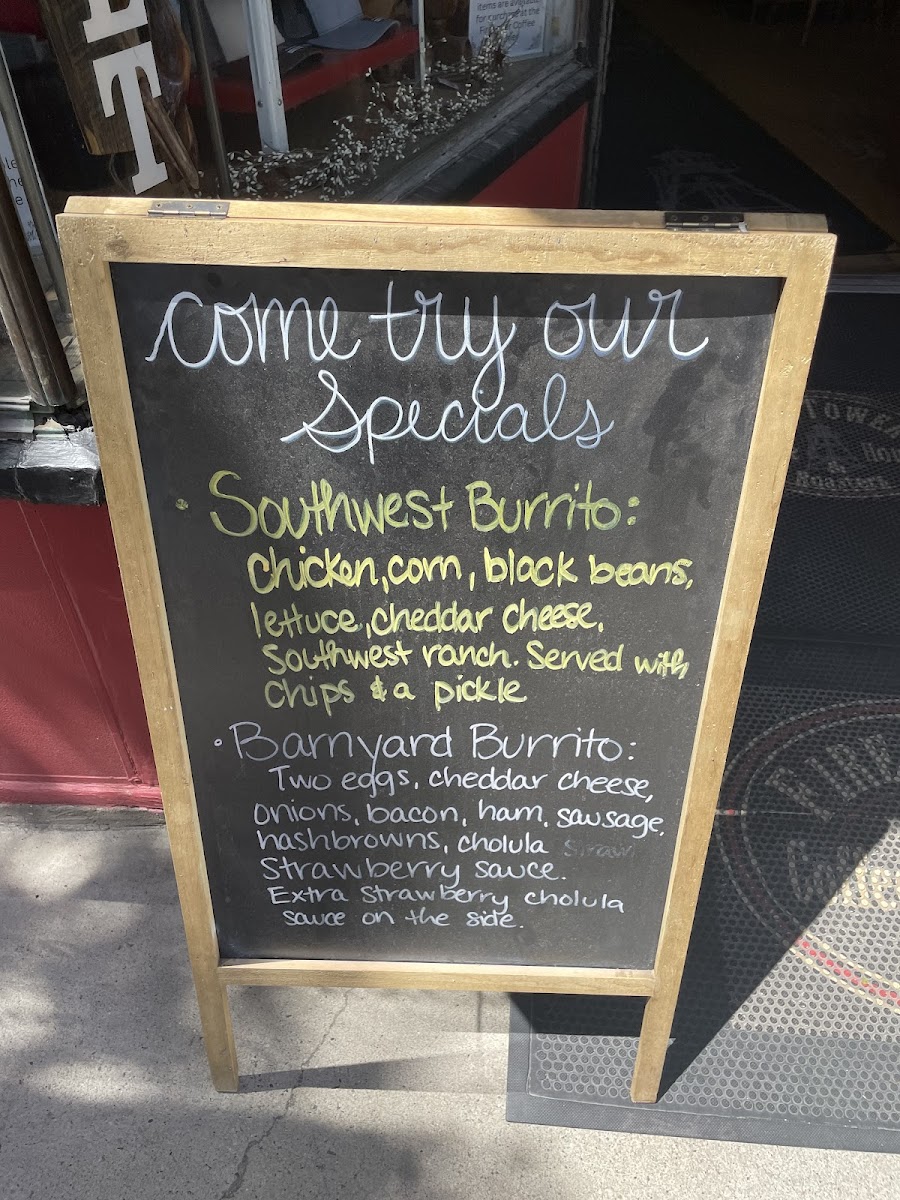 ET
items are available
for
Coffee
come try our
Specials
• Southwest Burrito:
Chicken, corn, black beans,
lettuce, cheddar cheese,
Southwest ranch. Served with
chips & a pickle
• Barnyard Burrito:
Two eggs, cheddar cheese,
onions, bacon, ham, sausage,
hashbrowns, cholula straw
Strawberry sauce.
Extra Strawberry cholula
sauce on the side.
TOWER
&
Roasters